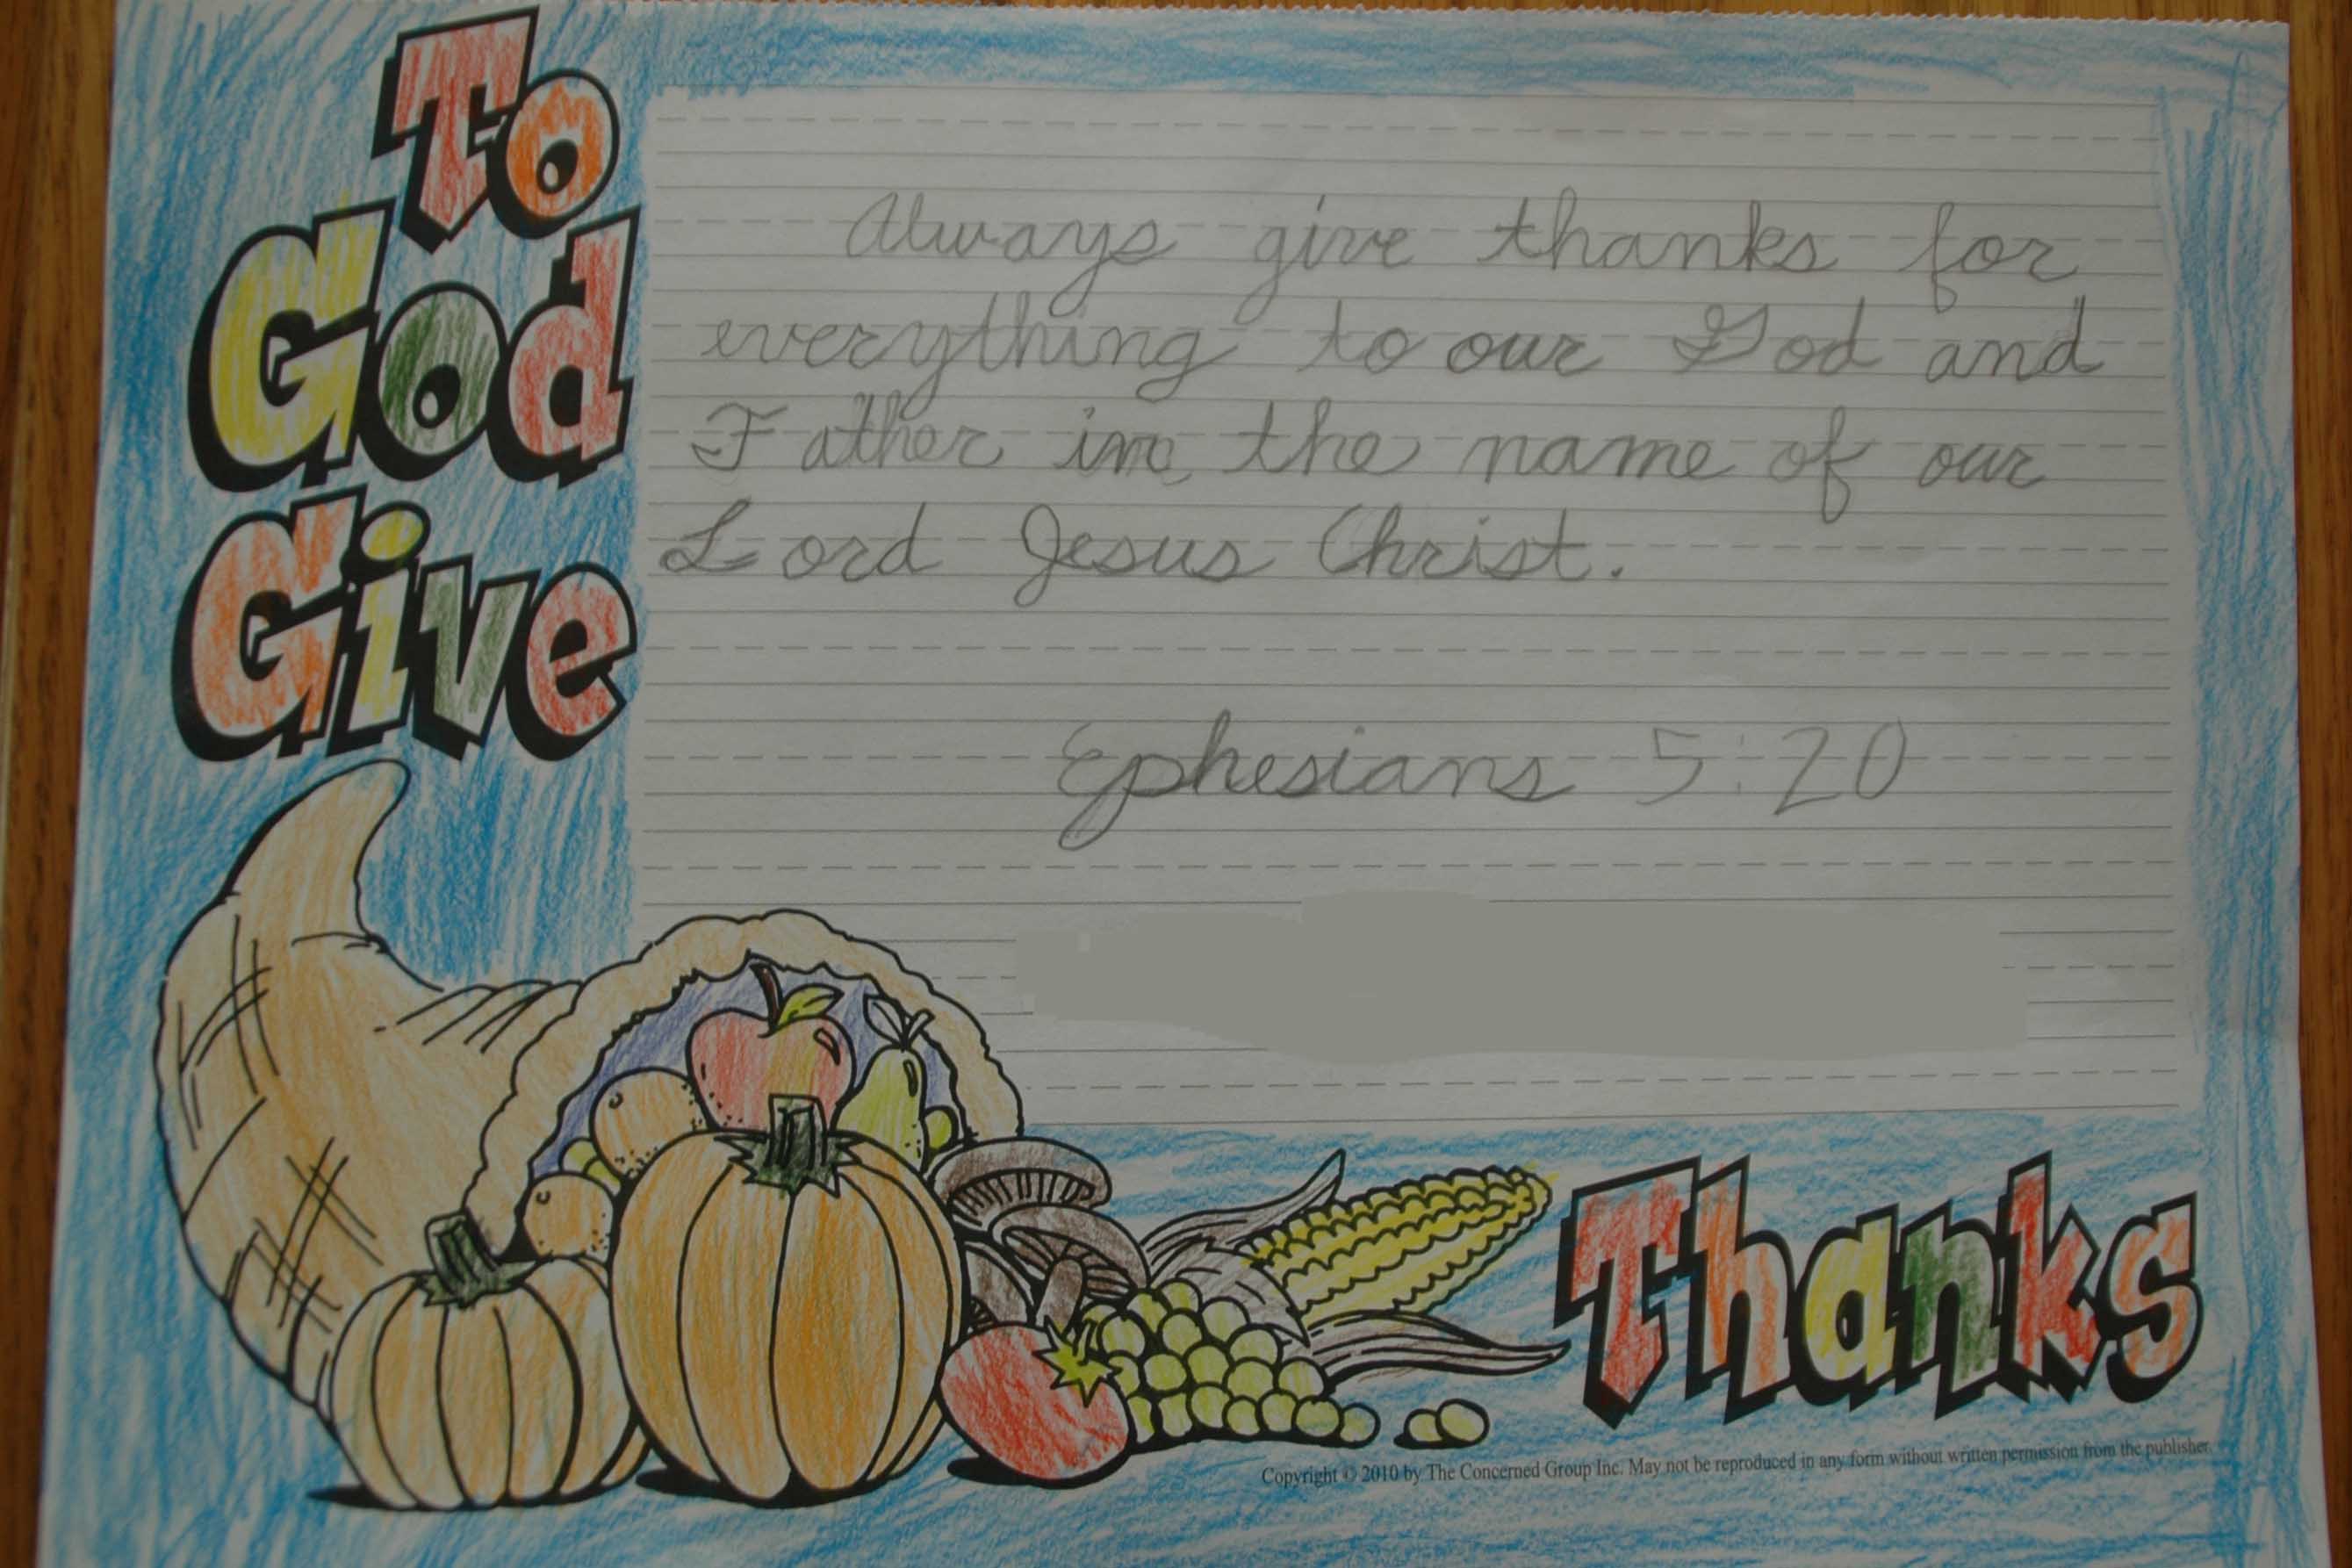 To
God
Give
Always give thanks for
everything to our God and
Father in the name of our
Lord Jesus Christ.
Ephesians 5:20
Thanks
Copyright © 2010 by The Concerned Group Inc. May not be reproduced in any form without written permission from the publisher.